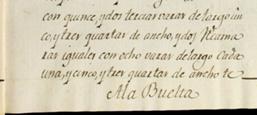 con quince, y dos tercias varas de largo cin
co, y tres quartas de ancho, y dos Recama
ras iguales con ocho varas de largo Cada
una, y cinco, y tres quartas de ancho te
A la Buelta